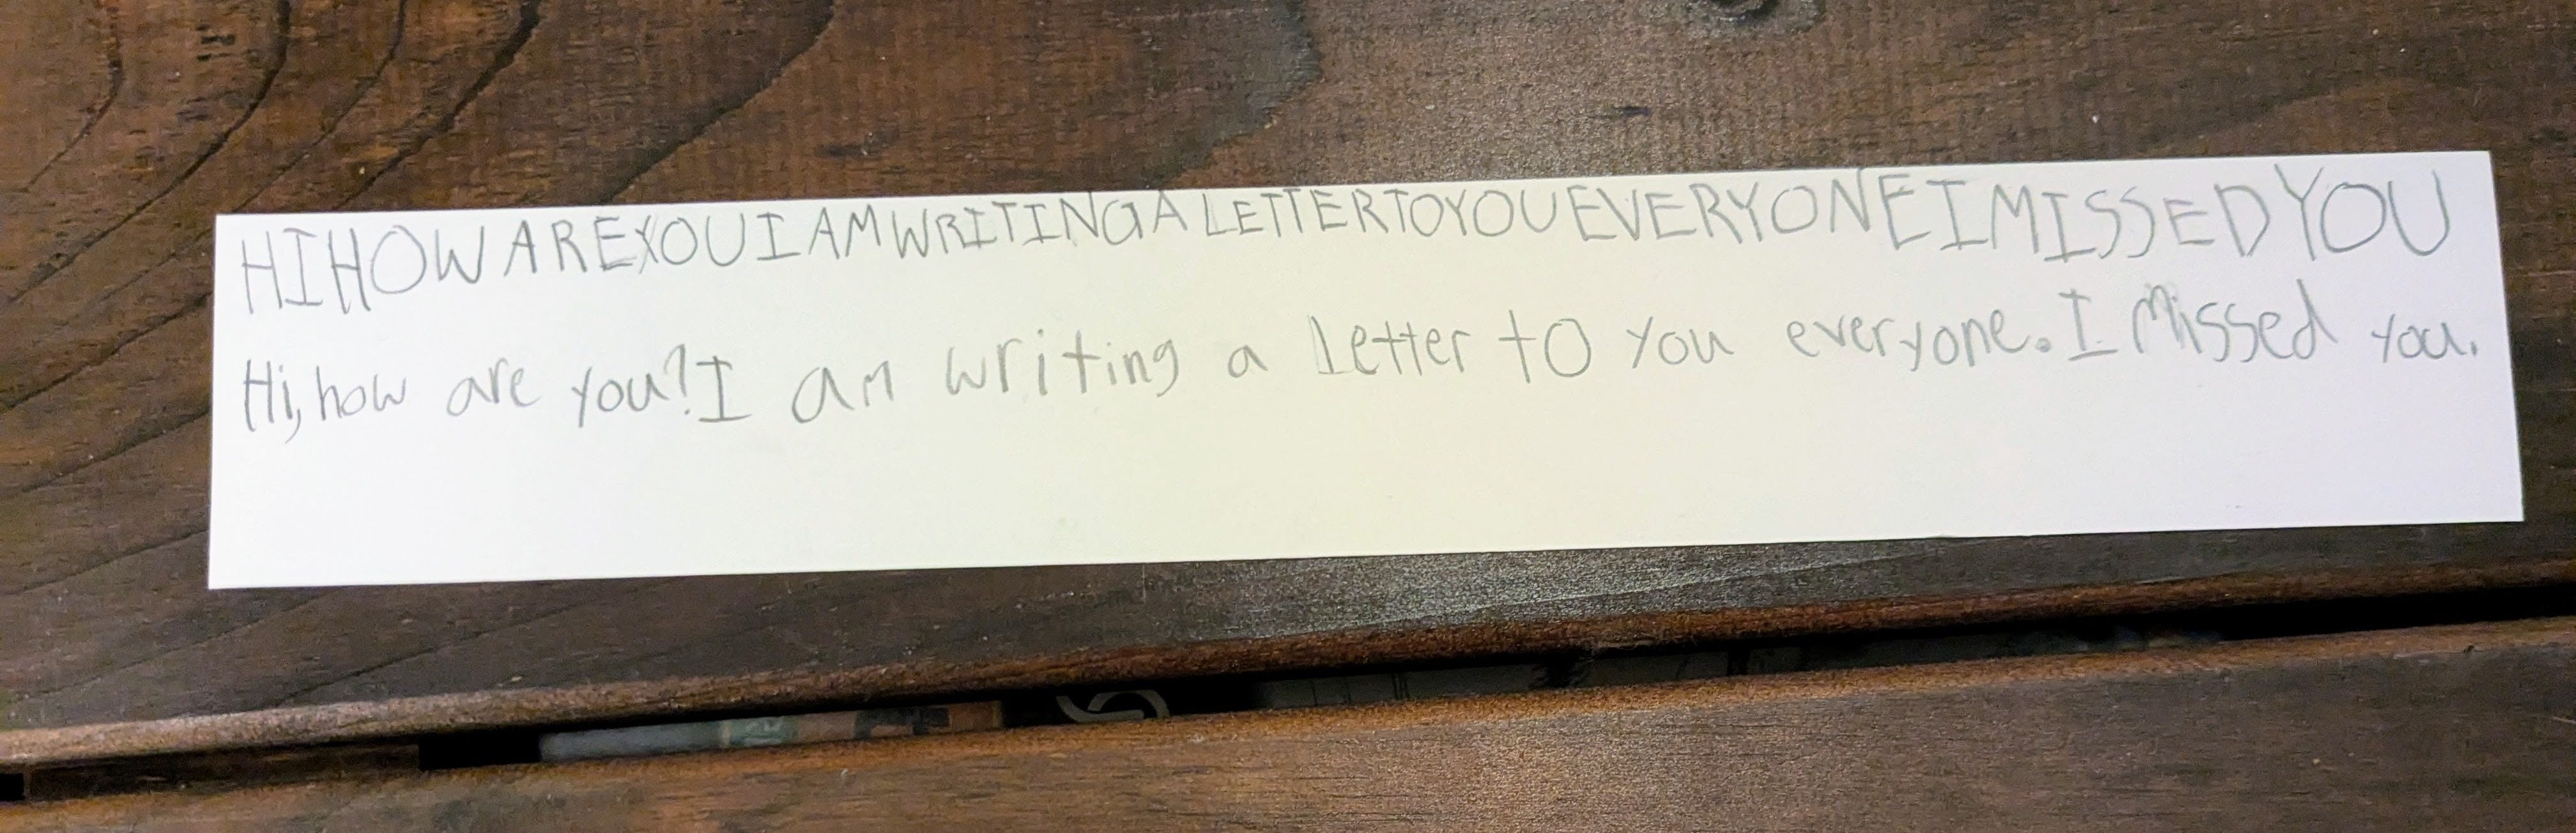 HIHOW AREYOUI AM WRITINGA LETTERTOYOUEVERYONEIMISSEDYOU
Hi, how are you? I am writing a letter to you everyone. I Missed you.